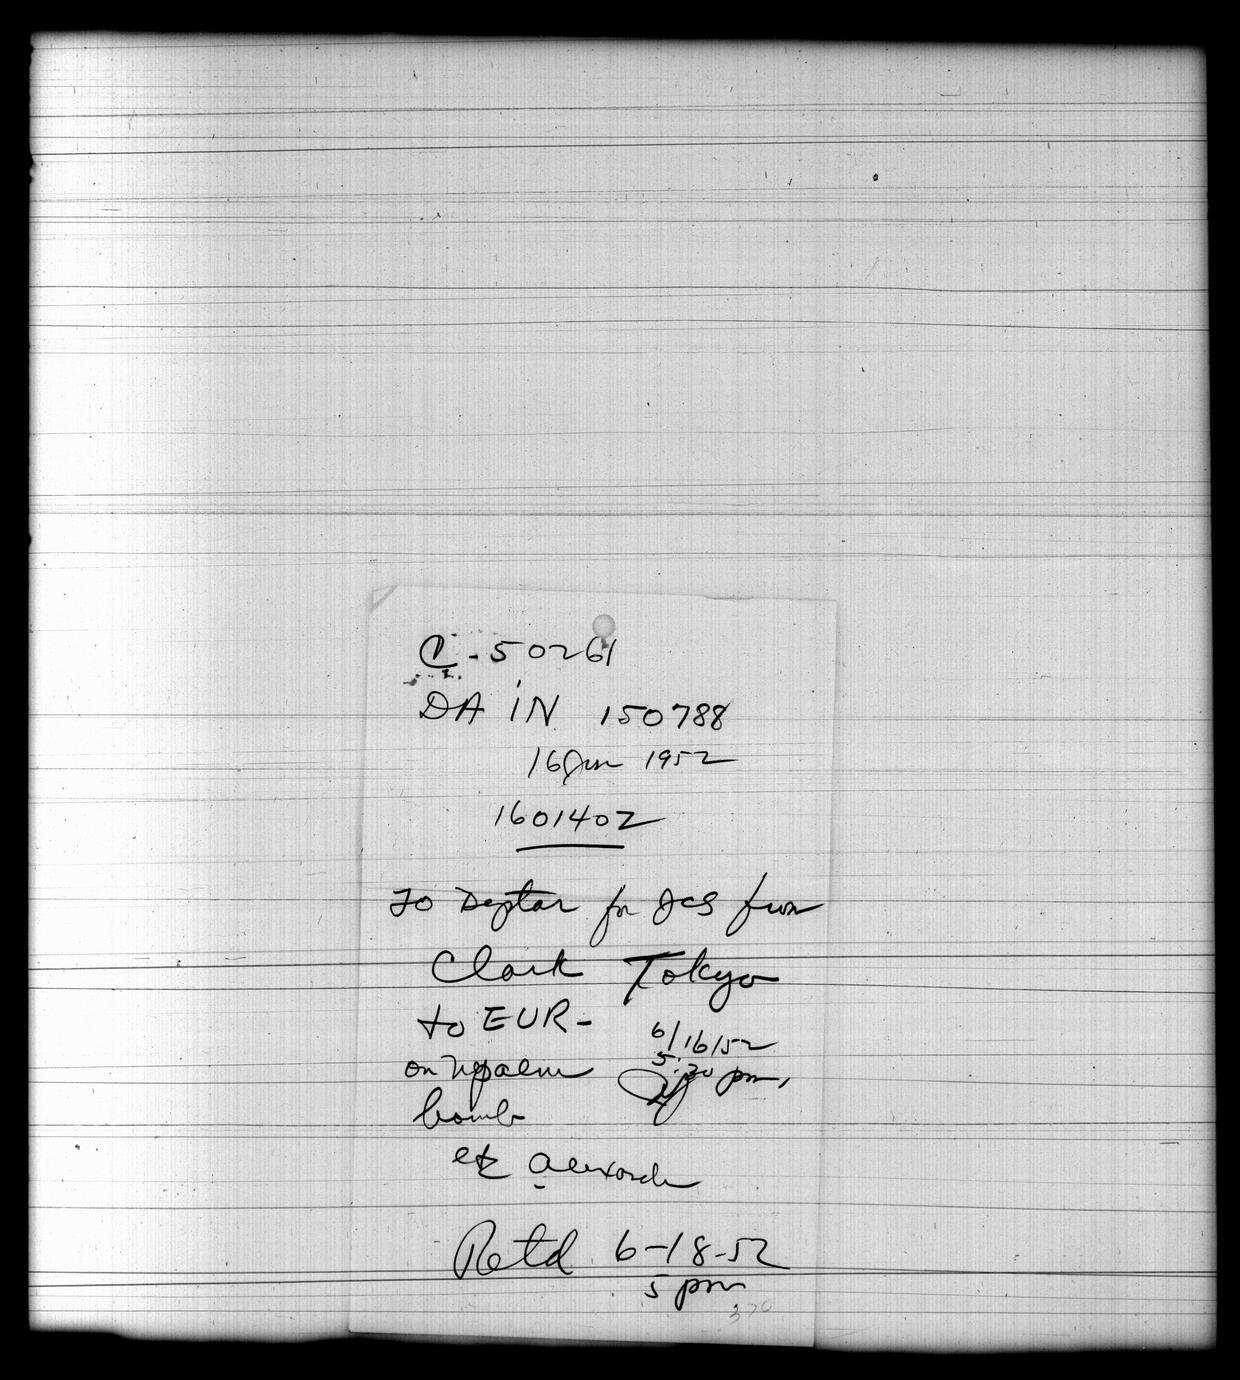 C-50261
DA IN 150788
16 Jun 1952
160140Z
To Deptar for JCS from
Clark Tokyo
to EUR-
6/16/52
on Napalm
5:30 pm,
bomb
etc Alexander
Retd 6-18-52
5 pm
370